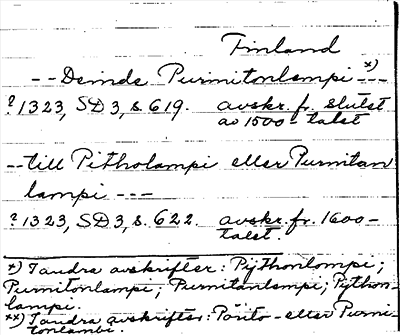 Finland
-- Deinde Purnitonlampi x) ---
? 1323, SD 3, s. 619. avskr. fr. slutet
av 1500-talet
-- till Pitholampi eller Purnitan
lampi ---
? 1323, SD 3, s. 622. avskr. fr. 1600-
talet.
x) I andra avskrifter: Pijthonlompi;
Purnitonlampi; Purnitanlampi; Python-
lampi.
xx) I andra avskrifter: Pórito- eller Purni-
tonlambi.